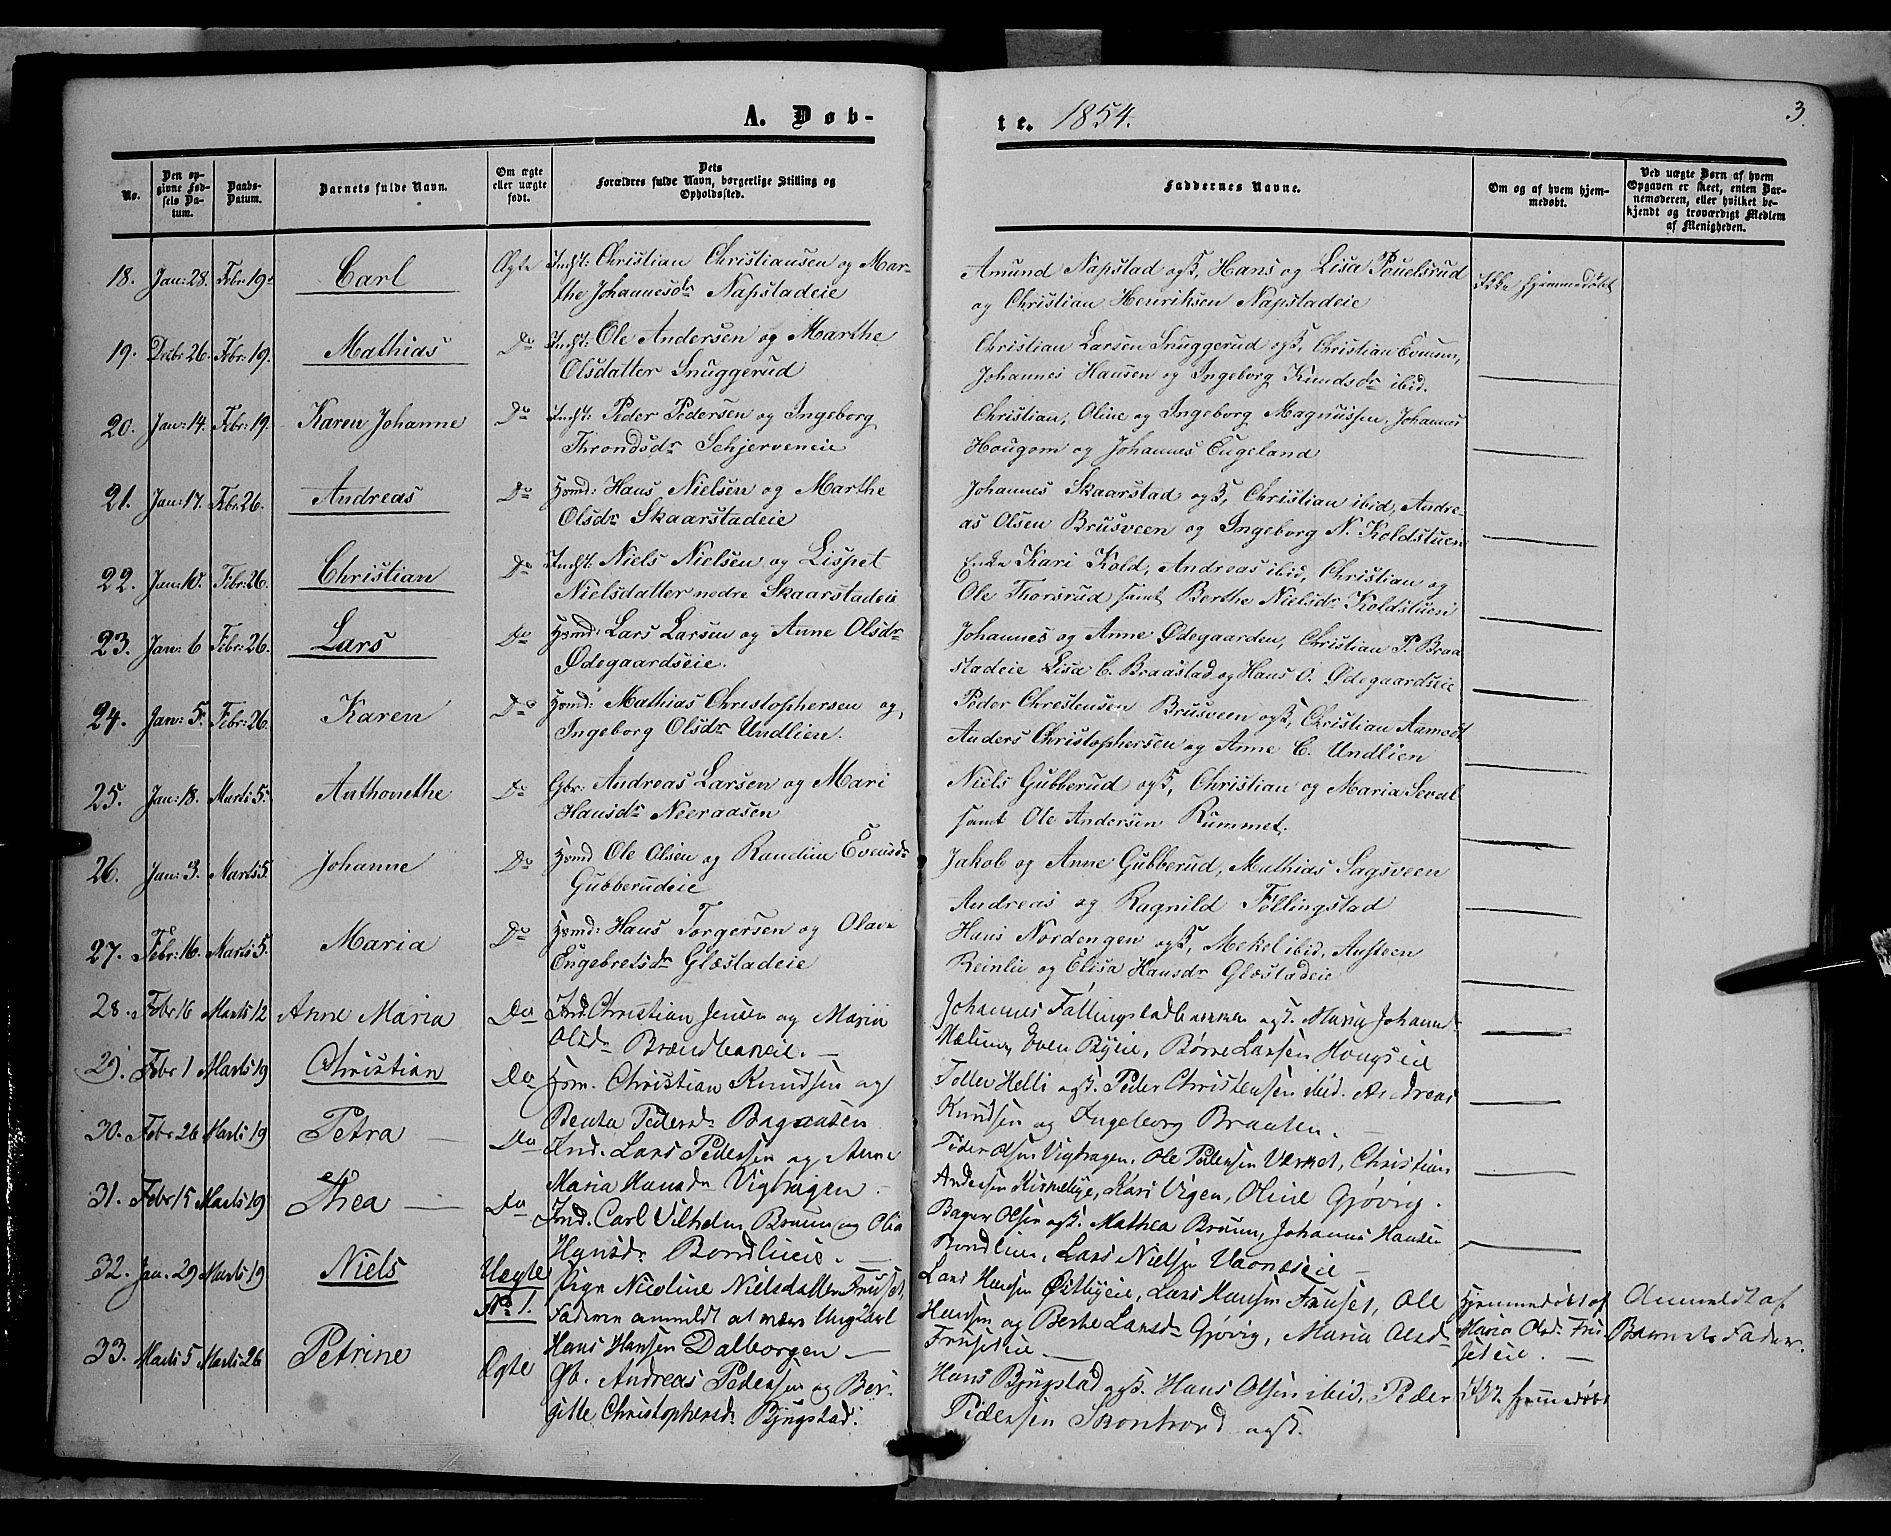 A. Døb-
te. 1854.
3.
No.
Den op-
givne Fød-
sels Da-
tum.
Daabs-
Datum.
Barnets fulde Navn.
Om ægte
eller uægte
født.
Dets
Forældres fulde Navn, borgerlige Stilling og
Opholdssted.
Faddernes Navne.
Om og af hvem hjem-
medøbt.
Ved uægte Børn af hvem
Opgaven er skeet, enten Bar-
nemoderen, eller hvilket be-
kjendt og troværdigt Medlem
af Menigheden.
18. Jan: 28. Febr: 19. Carl Ægte Indst: Christian Christiansen og Mar-
the Johannesdr Napstadeie
Amund Napstad og K, Hans og Lisa Pouelsrud
og Christian Henriksen Napstadeie
Ikke hjemmedøbt
19. Decbr 26. Febr: 19. Mathias Do Indst: Ole Andersen og Marthe
Olsdatter Snuggerud
Christian Larsen Snuggerud og K, Christian Evensen,
Johannes Hansen og Ingeborg Knudsdr ibid.
20. Jan: 14. Febr: 19. Karen Johanne Do Indst: Peder Pedersen og Ingeborg
Throndsdr Schjerveneie
Christian, Oline og Ingeborg Magnussen, Johannes
Hougom og Johannes Engeland
21. Jan: 17. Febr: 26. Andreas Do Hsmd: Hans Nielsen og Marthe
Olsdr Skaarstadeie
Johannes Skaarstad og K, Christian ibid, Andre-
as Olsen Brusveen og Ingeborg N. Koldstuen
22. Jan: 10. Febr: 26. Christian Do Indst: Niels Nielsen og Lispet
Nielsdatter nedre Skaarstadeie
Enke Kari Kold, Andreas ibid, Christian og
Ole Thorsrud samt Berthe Nielsdr Koldstuen
23. Jan: 6 Febr: 26. Lars Do Hsmd: Lars Larsen og Anne Olsdr
Ødegaardseie.
Johannes og Anne Ødegaarden, Christian P. Braa
stadeie Lisa C. Braastad og Hans O. Ødegaardseie
24. Jan: 5. Febr: 26. Karen Do Hsmd: Mathias Christophersen og
Ingeborg Olsdr Undlien.
Peder Chrestensen Brusveen og K, Christian Aamodt
Anders Christophersen og Anne C. Undlien
25. Jan: 18. Marts 5. Anthonethe Do Gbr: Andreas Larsen og Mari
Hansdr Neeraasen
Niels Gubberud og K, Christian og Maria Seval
samt Ole Andersen Rummet.
26. Jan: 3. Marts 5. Johanne Do Hsmd Ole Olsen og Randine Evensdr
Gubberudeie
Jakob og Anne Gubberud, Mathias Sagsveen
Andreas og Ragnild Føllingstad
27. Febr: 16. Marts 5. Maria Do Hsmd: Hans Torgersen og Olava
Engebretsdr Glæstadeie
Hans Nordengen og K, Mekel ibid, Austeen
Reinlie og Elisa Hansdr Glæstadeie
28. Febr 16 Marts 12 Anne Maria Do Ind. Christian Jensen og Maria
Olsdr
Johannes
29. Febr 1 Marts 19 Christian Do Hsm. Christian Knudsen og
Pedersdr
Tollev Helli og K. Peder Christensen ibid. Andreas
Knudsen og Ingeborg Braaten.
30. Febr 26 Marts 19 Petra Do Ind. Lars Pedersen og Anne
Maria Hansdr Vighagen
Peder Olsen Vighagen, Ole Pedersen Værket, Christian
Andersen Kirkebye, Kari Vigen, Oline Gjøvig.
31. Febr 15 Marts 19 Thea Do Ind. Carl Vilhelm Bruun og Olia
Hansdr Bondlieeie.
Bager Olsen og K. Mathea Bruun, Johannes Hansen
Bondlien, Lars Nielsen
32. Jan. 29 Marts 19 Niels Uægte
No 1.
Pige Nicoline Nielsdatter Fruset,
Faderen anmeldt at være Ungkarl
Hans Hansen Dalborgen
Lars Hansen Østbyeie, Lars Hansen Fruset, Ole
Hansen og Berthe Larsdr Gjøvig, Maria Olsd-
Fruseteie.
Hjemmedøbt af
Maria Olsd. Fru
seteie.
Anmeldt af
Barnets Fader.
33. Marts 5 Marts 26 Petrine Ægte Gb. Andreas Pedersen og Ber-
gitte Christophersdr Bjugstad.
Hans Bjugstad og K. Hans Olsen ibid, Peder
Pedersen og K.
Ikke hjemmedøbt